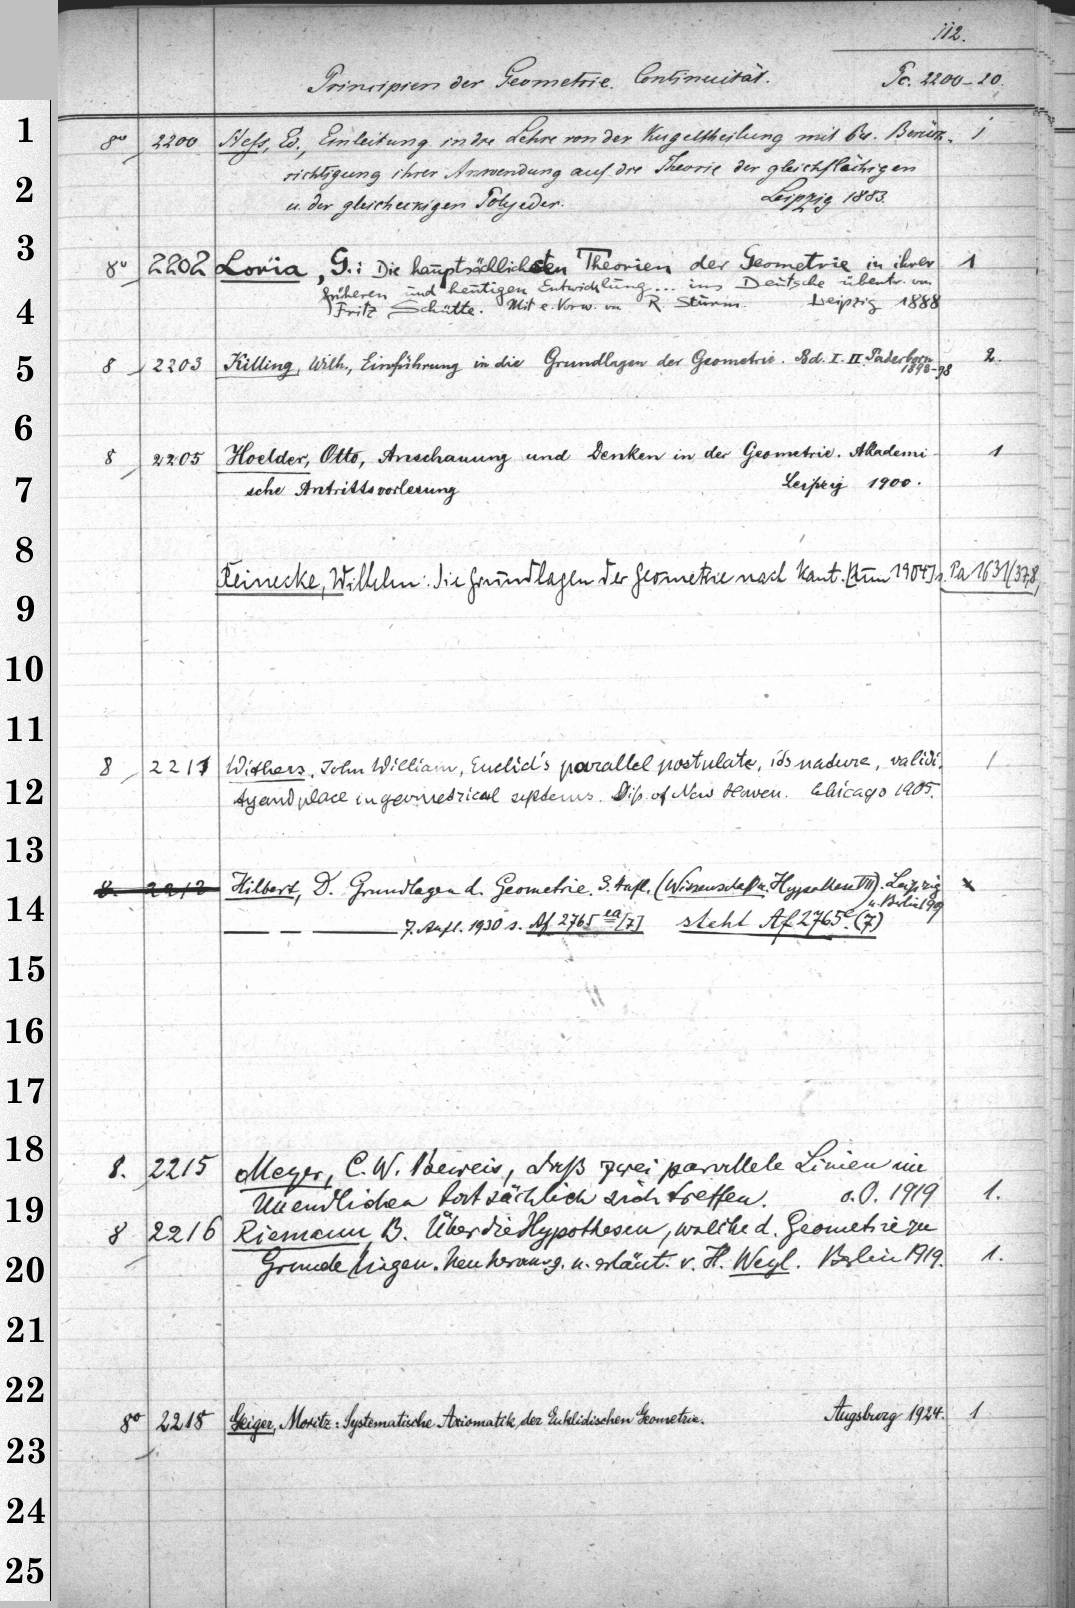 112.
Principien der Geometrie. Continuität. Pc. 2200-20.
1
8o 2200 Hess, Ed., Einleitung in die Lehre von der Kugeltheilung mit bes. Berück- 1
2
sichtigung ihrer Anwendung auf die Theorie der gleichflächigen
u. der gleicheckigen Polyeder. Leipzig 1883.
3
8o 2202 Loria, G.: Die hauptsächlichsten Theorien der Geometrie in ihrer 1
früheren und heutigen Entwicklung... ins Deutsche übertr. von
4
Fritz Schütte. Mit e. Vorw. von R. Sturm. Leipzig 1888
5
8 2203 Killing, Wilh., Einführung in die Grundlagen der Geometrie. Bd. I. II. Paderborn 2.
1893-98
6
8 2205 Hoelder, Otto, Anschauung und Denken in der Geometrie. Akademi- 1
7
sche Antrittsvorlesung Leipzig 1900.
8
Reinecke, Wilhelm: Die Grundlagen der Geometrie nach Kant. [Aum 1904] s. Pa 1631(378)
9
10
11
8 2211 Withers, John William, Euclid's parallel postulate, its nature, validi- 1
12
ty and place in geometrical systems. Diss. of New Haven. Chicago 1905.
13
8. 2212 Hilbert, D. Grundlagen d. Geometrie. 3. Aufl. (Wissenschaft u. Hypothese VII). Leipzig x
u. Berlin 1909
14
— — — 7. Aufl. 1930 s. Af 2765 ea [7] steht Af 2765e. (7)
15
16
17
18
8. 2215 Meyer, C. W. Beweis, daß zwei parallele Linien im
19
Unendlichen tatsächlich sich treffen. o.O. 1919 1.
8 2216 Riemann, B. Über die Hypothesen, welche d. Geometrie zu
20
Grunde liegen. Neu herausg. u. erläut. v. H. Weyl. Berlin 1919. 1.
21
22
8o 2218 Geiger, Moritz: Systematische Axiomatik der Euklidischen Geometrie. Augsburg 1924. 1
23
24
25